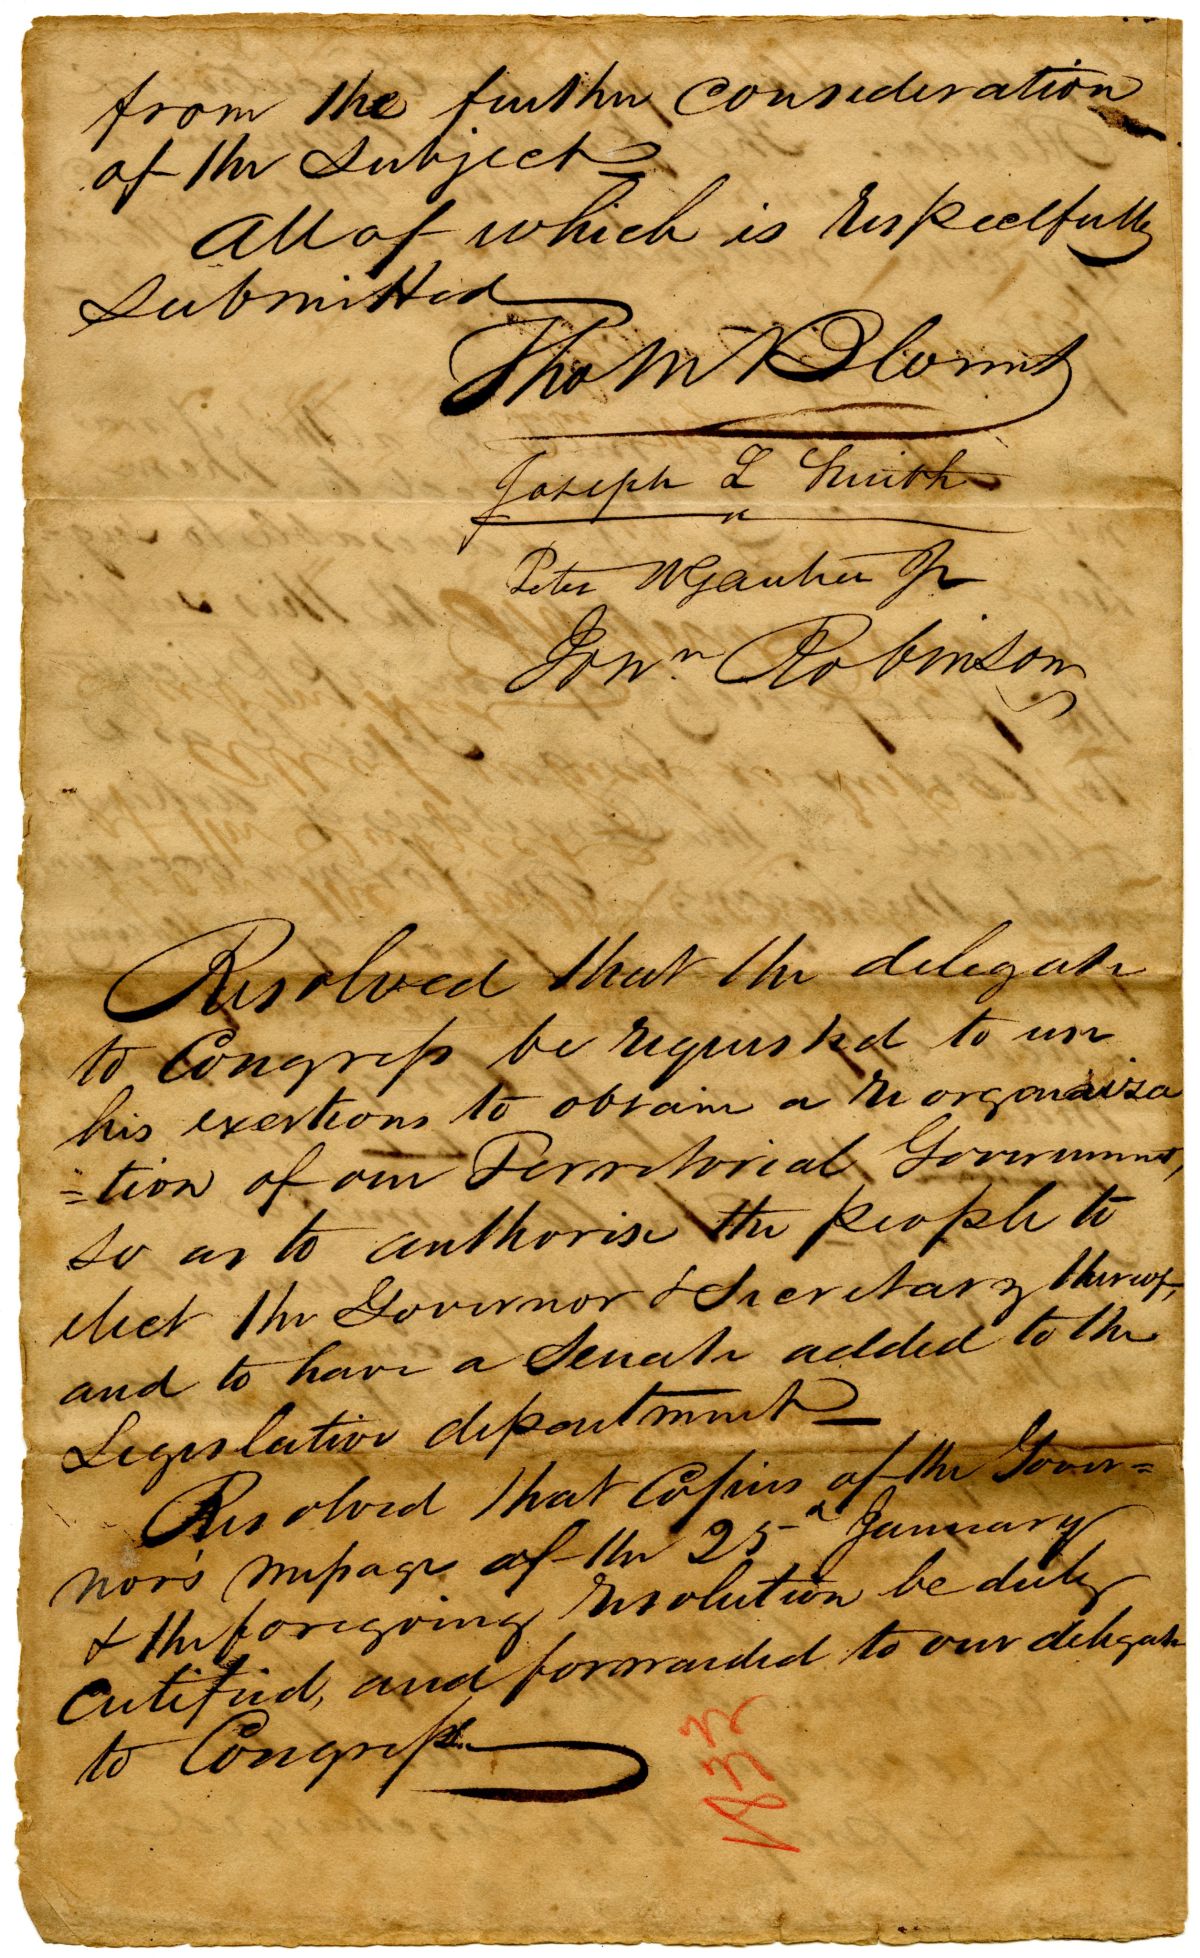 from the further consideration
of the subject
All of which is respectfully
submitted
Thos M Blount
Joseph L Smith
Peter W Gautier Jr
Jonn. Robinson
Resolved that the delegate
to Congress be requested to use
his exertions to obtain a reorganiza
=tion of our Territorial Government,
so as to authorise the people to
elect the Governor & Secretary thereof,
and to have a Senate added to the
Legislative department
Resolved that Copies of the Gover=
nor's message of the 25d January
& the foregoing resolution be duly
certified, and forwarded to our delegate
to Congress.
1832